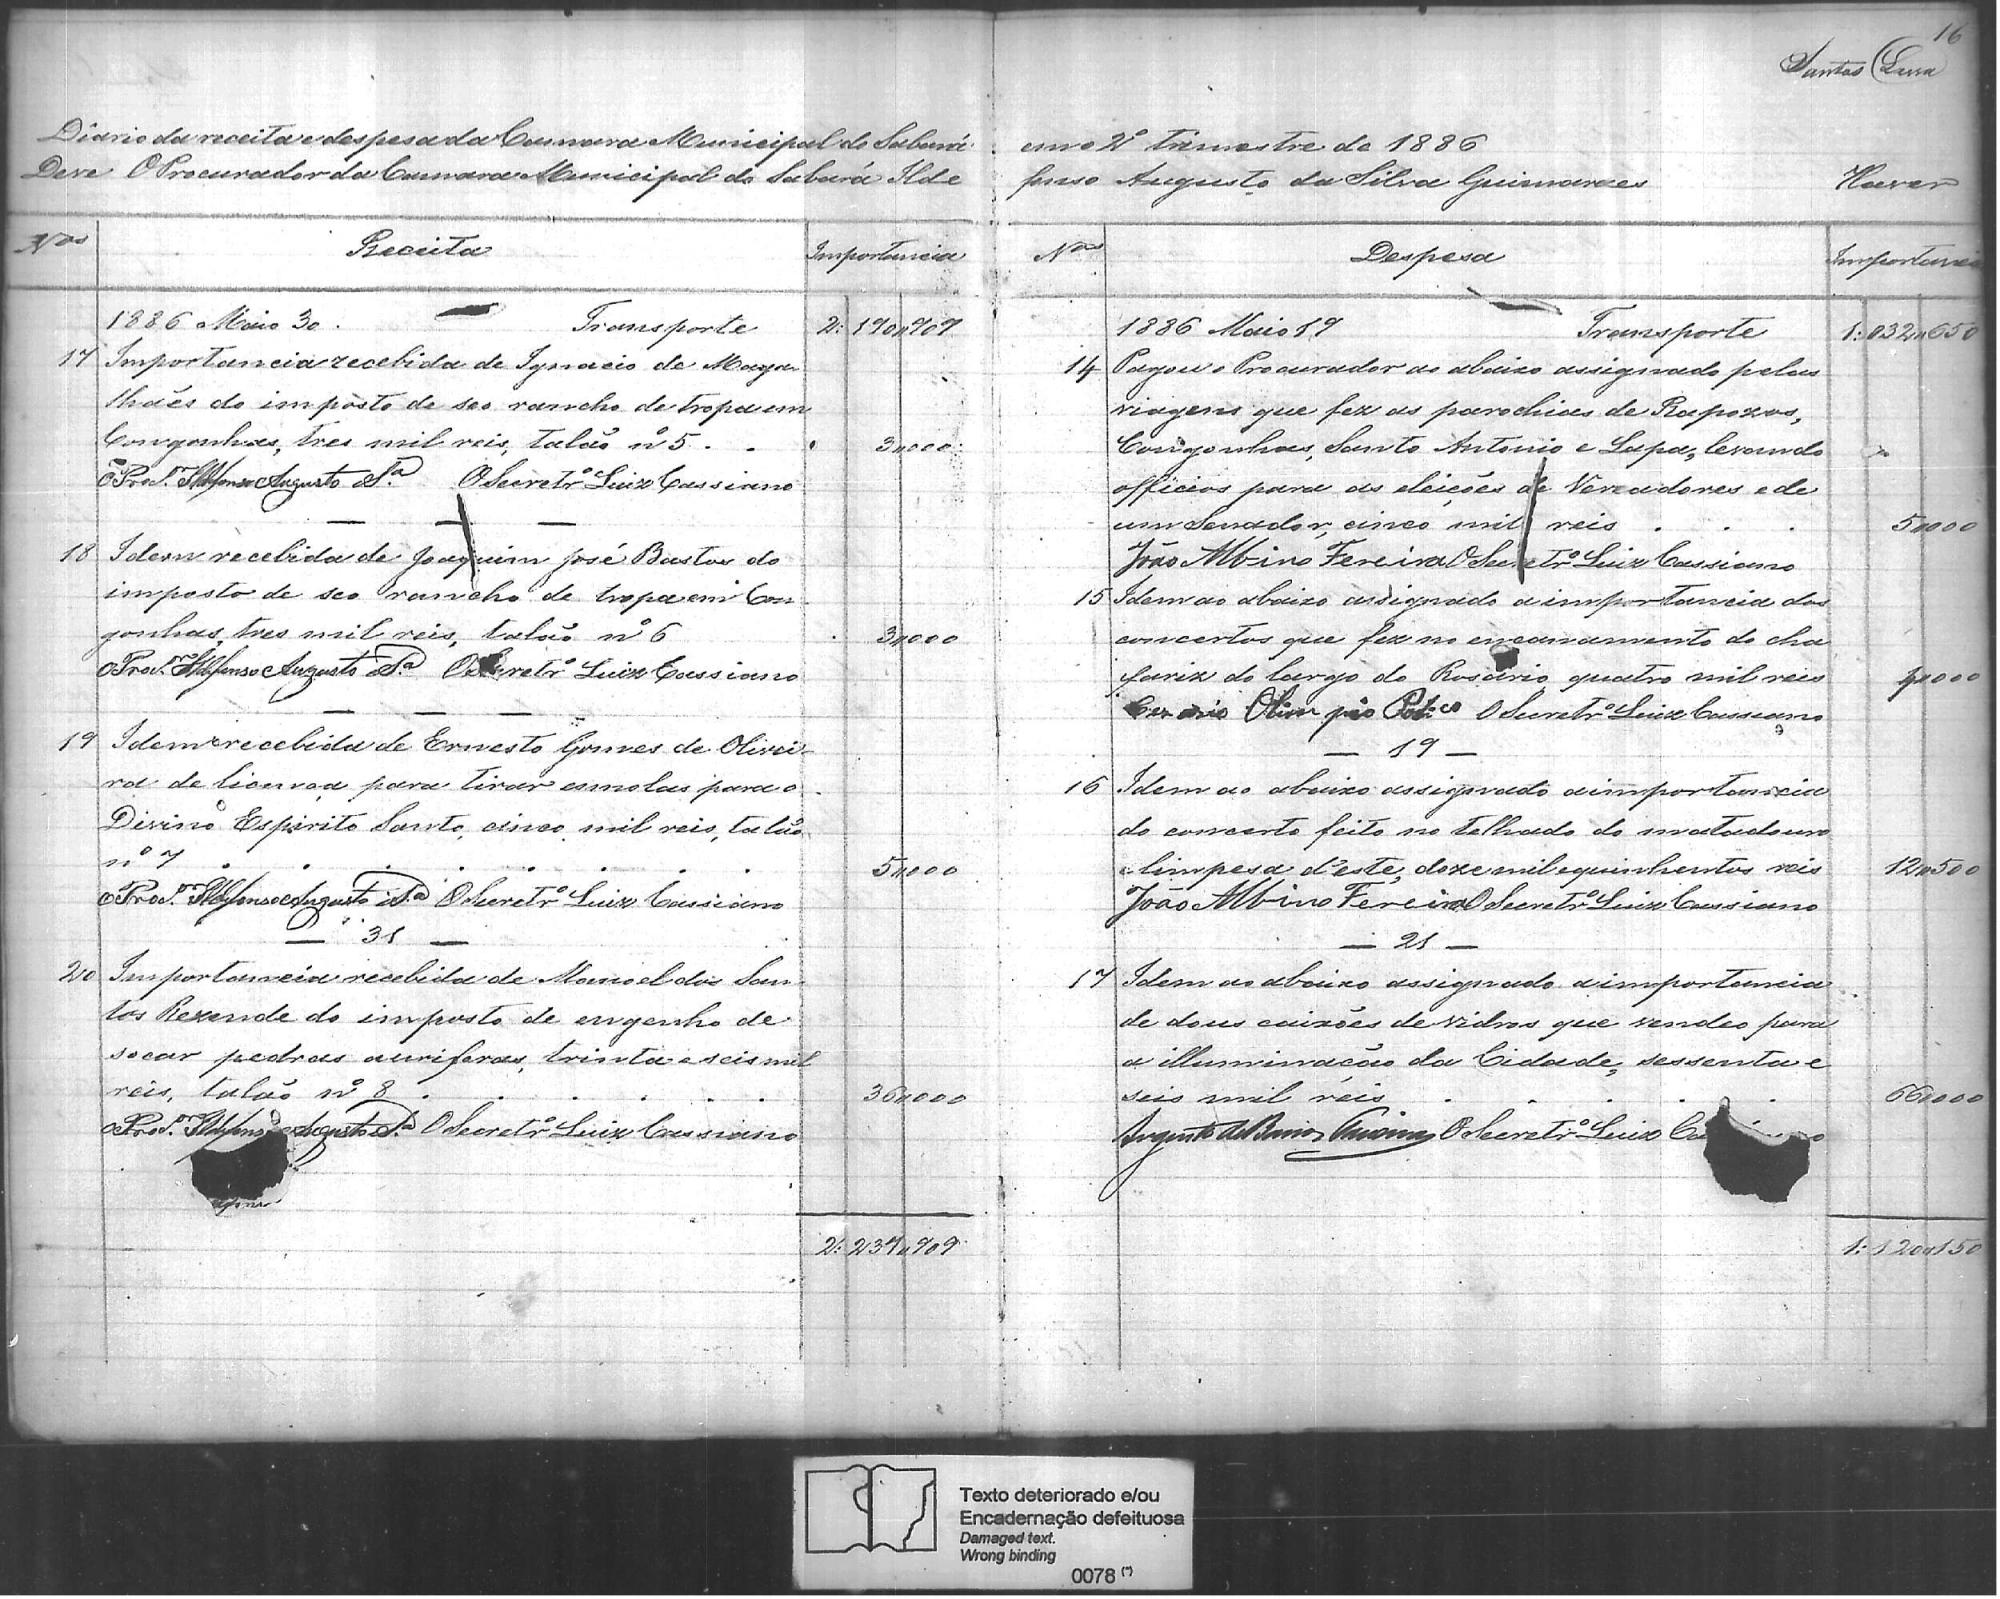 16
Santos Lima
Diario da receita e despesa da Camara Municipal do Sabará
Deve O Procurador da Camara Municipal do Sabará Ilde
Nos Receita Importancia
1886 Maio 30. Transporte 2:190"909
17 Importancia recebida de Ignacio de Maga
lhães do imposto de seo rancho de tropa em
Congonhas, tres mil reis, talão nº 5 . . 3"000
O Proc.r Ildfonso Augusto S.a O Secretrº Luiz Cassiano
— — —
18 Idem recebida de Joaquim José Bastos do
imposto de seo rancho de tropa em Con
gonhas, tres mil reis, talão nº 6 3"000
O Proc.r Ildfonso Augusto S.a O Secretrº Luiz Cassiano
— — —
19 Idem recebida de Ernesto Gomes de Olivei
ra de licença para tirar esmolas para o
Divino Espirito Santo, cinco mil reis, talão
nº 7 . . . . . . . 5"000
O Proc.r Ildfonso Augusto S.a O Secretrº Luiz Cassiano
— 31 —
20 Importancia recebida de Manoel dos San
tos Rezende do imposto de engenho de
socar pedras auriferas, trinta e seis mil
reis, talão nº 8 . . . . . . 36"000
O Proc.r Ildfonso Augusto S.a O Secretrº Luiz Cassiano
2:237"909
em o 2º trimestre de 1886
fonso Augusto da Silva Guimarães Haver
Nos Despesa Importancia
1886 Maio 19 Transporte 1:032"650
14 Pagou o Procurador ao abaixo assignado pelas
viagens que fez as parochias de Rapozos,
Congonhas, Santo Antonio e Lapa, levando
officios para as eleições de Vereadores e de
um Senador, cinco mil reis . . . 5"000
João Albino Fereira O Secretrº Luiz Cassiano
15 Idem ao abaixo assignado a importancia dos
concertos que fez no encanamento do cha
fariz do largo do Rosario quatro mil reis 4"000
O Secretrº Luiz Cassiano
— 19 —
16 Idem ao abaixo assignado a importancia
do concerto feito no telhado do matadouro
e limpesa d'este, doze mil e quinhentos reis 12"500
João Albino Fereira O Secretrº Luiz Cassiano
— 21 —
17 Idem ao abaixo assignado a importancia
de dous caixões de vidros que vendeo para
a illuminação da Cidade, sessenta e
seis mil réis . . . . . 66"000
O Secretrº Luiz
1:120"150
Texto deteriorado e/ou
Encadernação defeituosa
Damaged text.
Wrong binding
0078 (*)